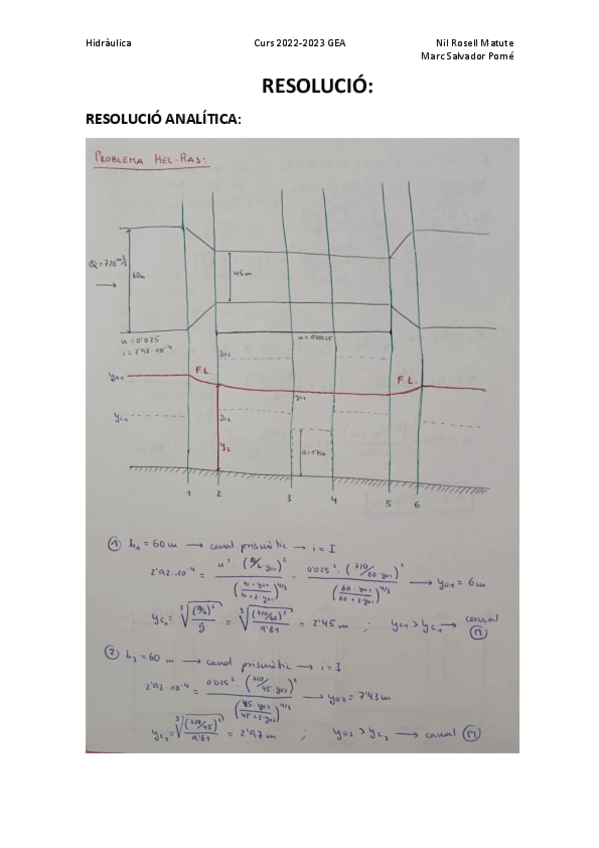 Hidràulica Curs 2022-2023 GEA Nil Rosell Matute
Marc Salvador Pomé
RESOLUCIÓ:
RESOLUCIÓ ANALÍTICA:
PROBLEMA HEC-RAS:
Q=720 m³/s
60m
45m
n=0'025
i=2'92·10⁻⁴
F.L.
F.L.
y01
yc1
yc2
y2
1 2 3 4 5 6
① b₁=60m → canal prismàtic → i=I
2'92·10⁻⁴ = n²·(Q/b·y01)² / (b·y01/b+2·y01)^4/3 = 0'025²·(720/60·y01)² / (60·y01/60+2·y01)^4/3 → y01=6m
yc1= ∛((Q/b)²/g) = ∛((720/60)²/9'81) = 2'45 m ; y01>yc1 → canal Ⓜ
② b₂=60 m → canal prismàtic → i=I
2'92·10⁻⁴ = 0'025²·(720/45·y02)² / (45·y02/45+2·y02)^4/3 → y02=7'43m
yc2= ∛((720/45)²/9'81) = 2'97m ; y02>yc2 → canal Ⓜ